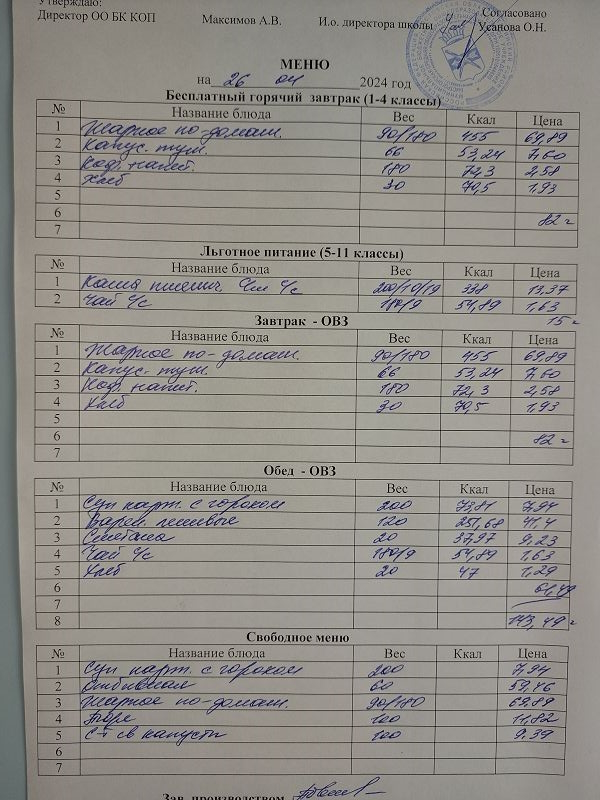 Утверждаю:
Директор ОО БК КОП Максимов А.В. И.о. директора школы Согласовано
Усанова О.Н.
МЕНЮ
на 26 04 2024 год
Бесплатный горячий завтрак (1-4 классы)
№ Название блюда Вес Ккал Цена
1 Жаркое по-домаш. 90/180 455 69,89
2 Капус. туш. 66 53,24 7,60
3 Коф. напит. 180 72,3 2,58
4 Хлеб 30 70,5 1,93
5
6 82 г
7
Льготное питание (5-11 классы)
№ Название блюда Вес Ккал Цена
1 Каша пшенич 338 13,37
2 Чай ч/с 180/9 54,89 1,63
15 г
Завтрак - ОВЗ
№ Название блюда Вес Ккал Цена
1 Жаркое по-домаш. 90/180 455 69,89
2 Капус. туш. 66 53,24 7,60
3 Коф. напит. 180 72,3 2,58
4 Хлеб 30 70,5 1,93
5
6 82 г
7
Обед - ОВЗ
№ Название блюда Вес Ккал Цена
1 Суп карт. с горохом 200 73,81 7,94
2 Варен. ленивые 120 251,68 41,4
3 Сметана 20 37,97 9,23
4 Чай ч/с 180/9 54,89 1,63
5 Хлеб 20 47 1,29
6 61,49
7
8 143,49 г
Свободное меню
№ Название блюда Вес Ккал Цена
1 Суп карт. с горохом 200 7,94
2 60 59,46
3 Жаркое по-домаш. 90/180 69,89
4 Пюре 100 11,82
5 С-т св капусты 100 9,39
6
7
Зав. производством